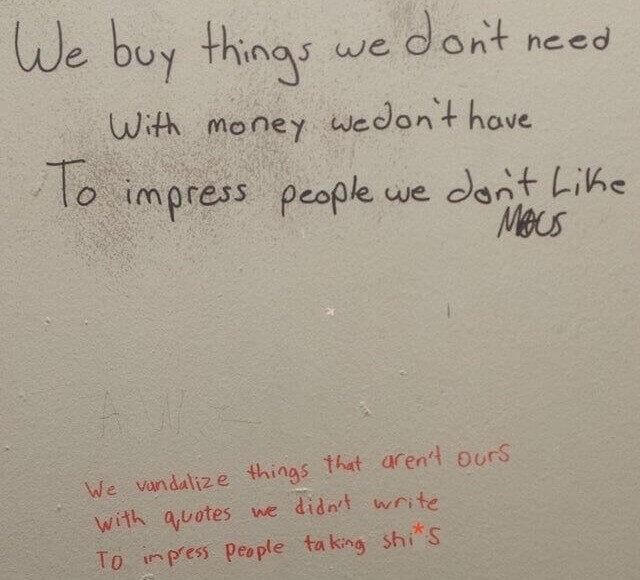 We buy things we don't need
With money we don't have
To impress people we don't Like
We vandalize things that aren't ours
with quotes we didn't write
To impress people taking shi*s